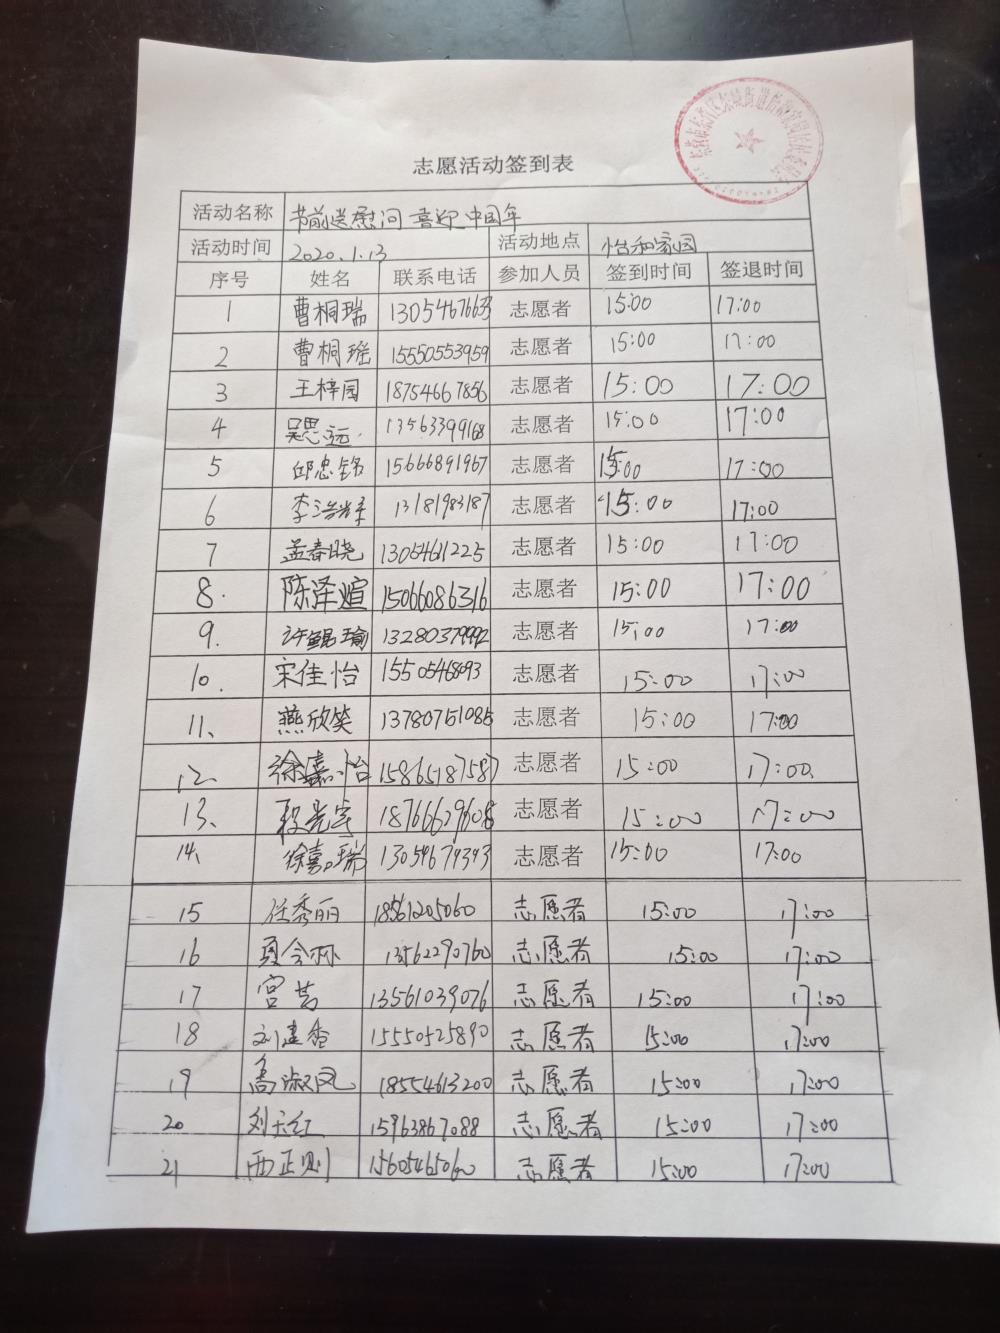 志愿活动签到表
活动名称 节前送慰问 喜迎中国年
活动时间 2020.1.13 活动地点 怡和家园
序号 姓名 联系电话 参加人员 签到时间 签退时间
1 曹桐瑞 13054676633 志愿者 15:00 17:00
2 曹桐瑶 15550553959 志愿者 15:00 17:00
3 王梓园 18754667856 志愿者 15:00 17:00
4 吴思远 13563399168 志愿者 15:00 17:00
5 邱忠铭 15666891967 志愿者 15:00 17:00
6 13181983187 志愿者 15:00 17:00
7 孟春晓 13054611225 志愿者 15:00 17:00
8. 陈泽煊 15066086316 志愿者 15:00 17:00
9. 许鲲瑜 13280379992 志愿者 15:00 17:00
10. 宋佳怡 15505468093 志愿者 15:00 17:00
11、 燕欣笑 13780751085 志愿者 15:00 17:00
12、 徐嘉怡 15865187587 志愿者 15:00 17:00
13、 18766629608 志愿者 15:00 17:00
14、 徐嘉瑞 13054679393 志愿者 15:00 17:00
15 任秀丽 18561205060 志愿者 15:00 17:00
16 13562290760 志愿者 15:00 17:00
17 宫营 13561039076 志愿者 15:00 17:00
18 刘建香 15550525890 志愿者 15:00 17:00
19 高淑凤 18554613200 志愿者 15:00 17:00
20 刘天红 15963867088 志愿者 15:00 17:00
21 西正则 15605465060 志愿者 15:00 17:00